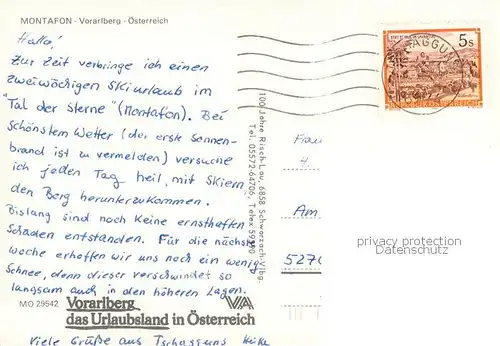 MONTAFON - Vorarlberg - Österreich
Hallo!
Zur Zeit verbringe ich einen
zweiwöchigen Skiurlaub im
"Tal der Sterne" (Montafon). Bei
schönstem Wetter (der erste Sonnen-
brand ist zu vermelden) versuche
ich jeden Tag heil, mit Skiern
den Berg herunterzukommen.
Bislang sind noch keine ernsthaften
Schäden entstanden. Für die nächste
Woche erhoffen wir uns noch ein wenig
Schnee, denn dieser verschwindet so
langsam auch in den höheren Lagen.
MO 29542
Vorarlberg
das Urlaubsland in Österreich
VVA
Viele Grüße aus Tschagguns Heike
100 Jahre Risch-Lau, 6858 Schwarzach-Vlbg.
Tel. 05572-64706, Telex 59290
5s
REPUBLIK ÖSTERREICH
Frau
Am
5270
privacy protection
Datenschutz